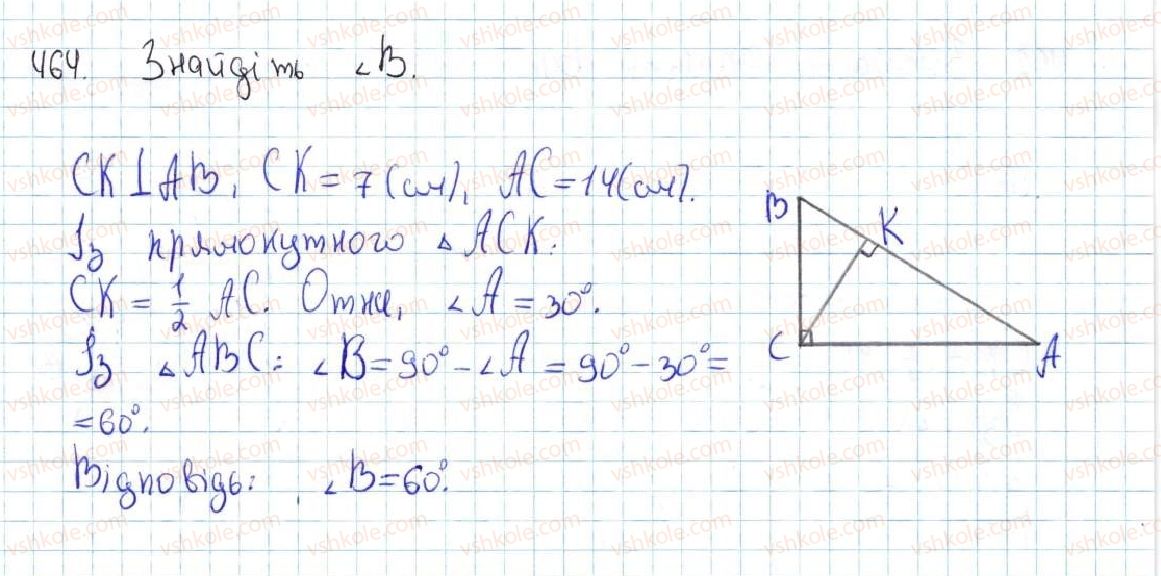 464. Знайдіть ∠B.
CK⊥AB, CK = 7 (см), AC = 14 (см).
Із прямокутного △ ACK:
CK = 1/2 AC. Отже, ∠A = 30°.
Із △ABC: ∠B = 90° - ∠A = 90° - 30° =
= 60°.
Відповідь: ∠B = 60°.
B
K
C
A
vshkole.com